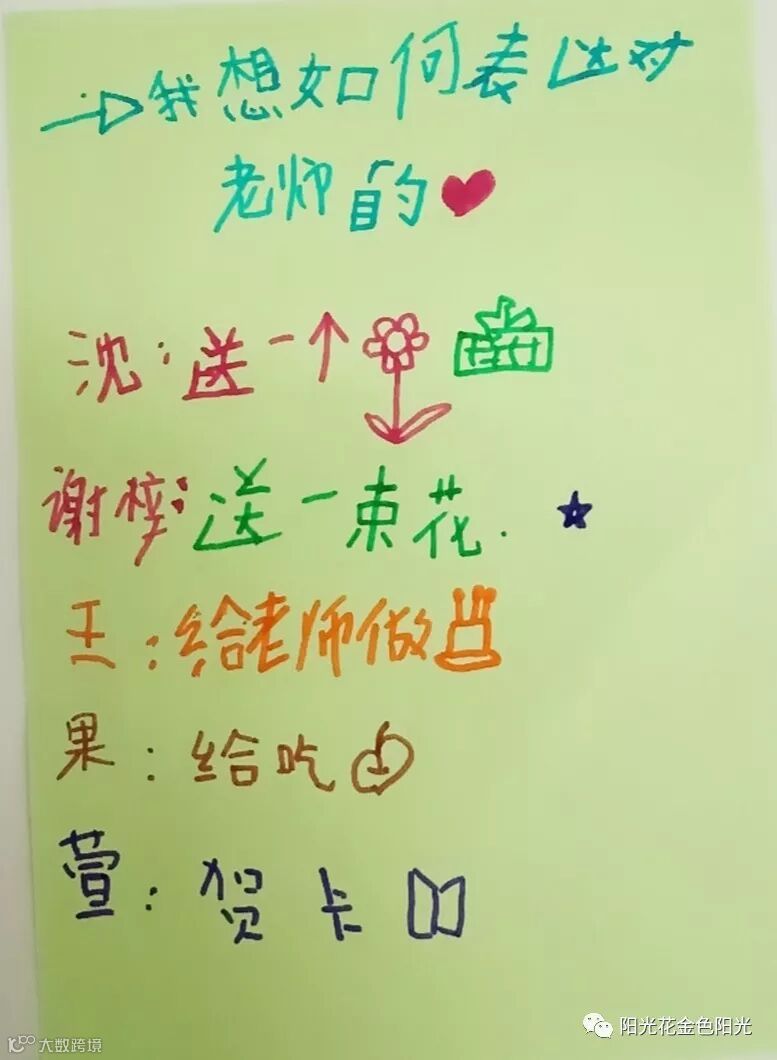 我想如何表达对
老师的
沈:送一个
谢梓:送一束花.
王:给老师做
果:给吃
萱:贺卡
阳光花金色阳光
大数跨境